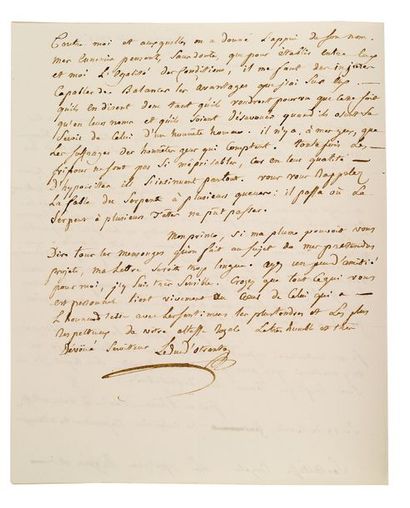 Contre moi et auxquelles on a donné l'appui de son nom.
mes Ennemis pensent, sans doute, que pour établir entre eux
et moi l'égalité de Conditions, il me faut des injures
Capables de Balancer les avantages que j'ai sur eux.
qu'ils en disent donc tant qu'ils voudront pourvu que ce ne soit
qu'en leurs noms et qu'ils soient désavoués quand ils
d'un honnête homme. il n'y a, à mes yeux, que
Les suffrages des honnêtes gens qui Comptent. toutefois Les
fripons ne sont pas si méprisables, Car en leur qualité
d'hypocrites ils s'insinuent partout. vous vous Rappelez
La fable du Serpent à plusieurs queues: il passa où Le
Serpent à plusieurs Têtes ne put passer.
Mon prince, si ma plume pouvoit vous
Dire tous les mensonges qu'on fait au sujet de mes prétendus
projets, ma Lettre seroit trop longue. ayez un peu d'amitié
pour moi, j'y suis très sensible. Croyez que tout ce qui vous
est personnel tient vivement au Cœur de Celui qui a
L'honneur d'être avec Les sentimens les plus tendres et Les plus
Respectueux de votre altesse Royale Le très humble et très
Dévoué Serviteur Le Duc d'Otrante